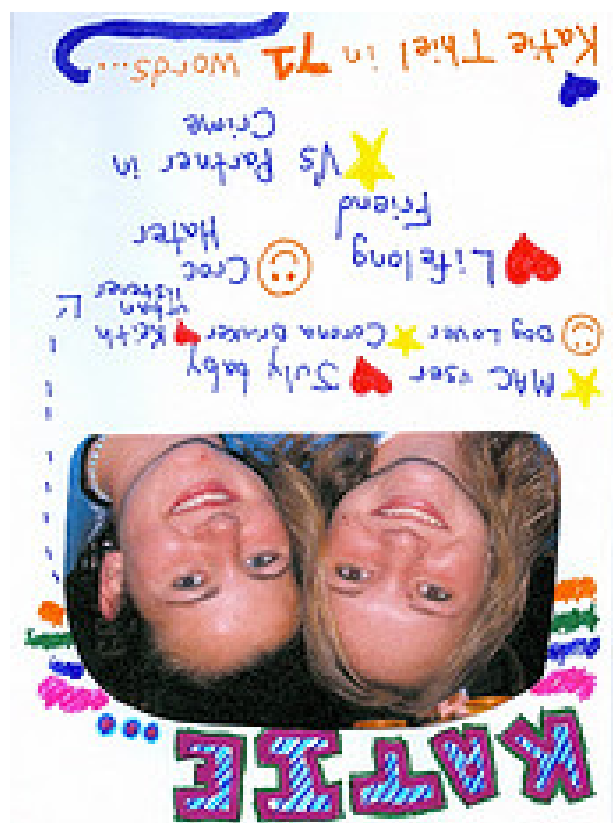 KATIE...
MAC user July baby
Dog Lover Corona Drinker Keith
urban
listener
Lifelong Croc
Friend Hater
V's Partner in
Crime
Katie Thiel in words...